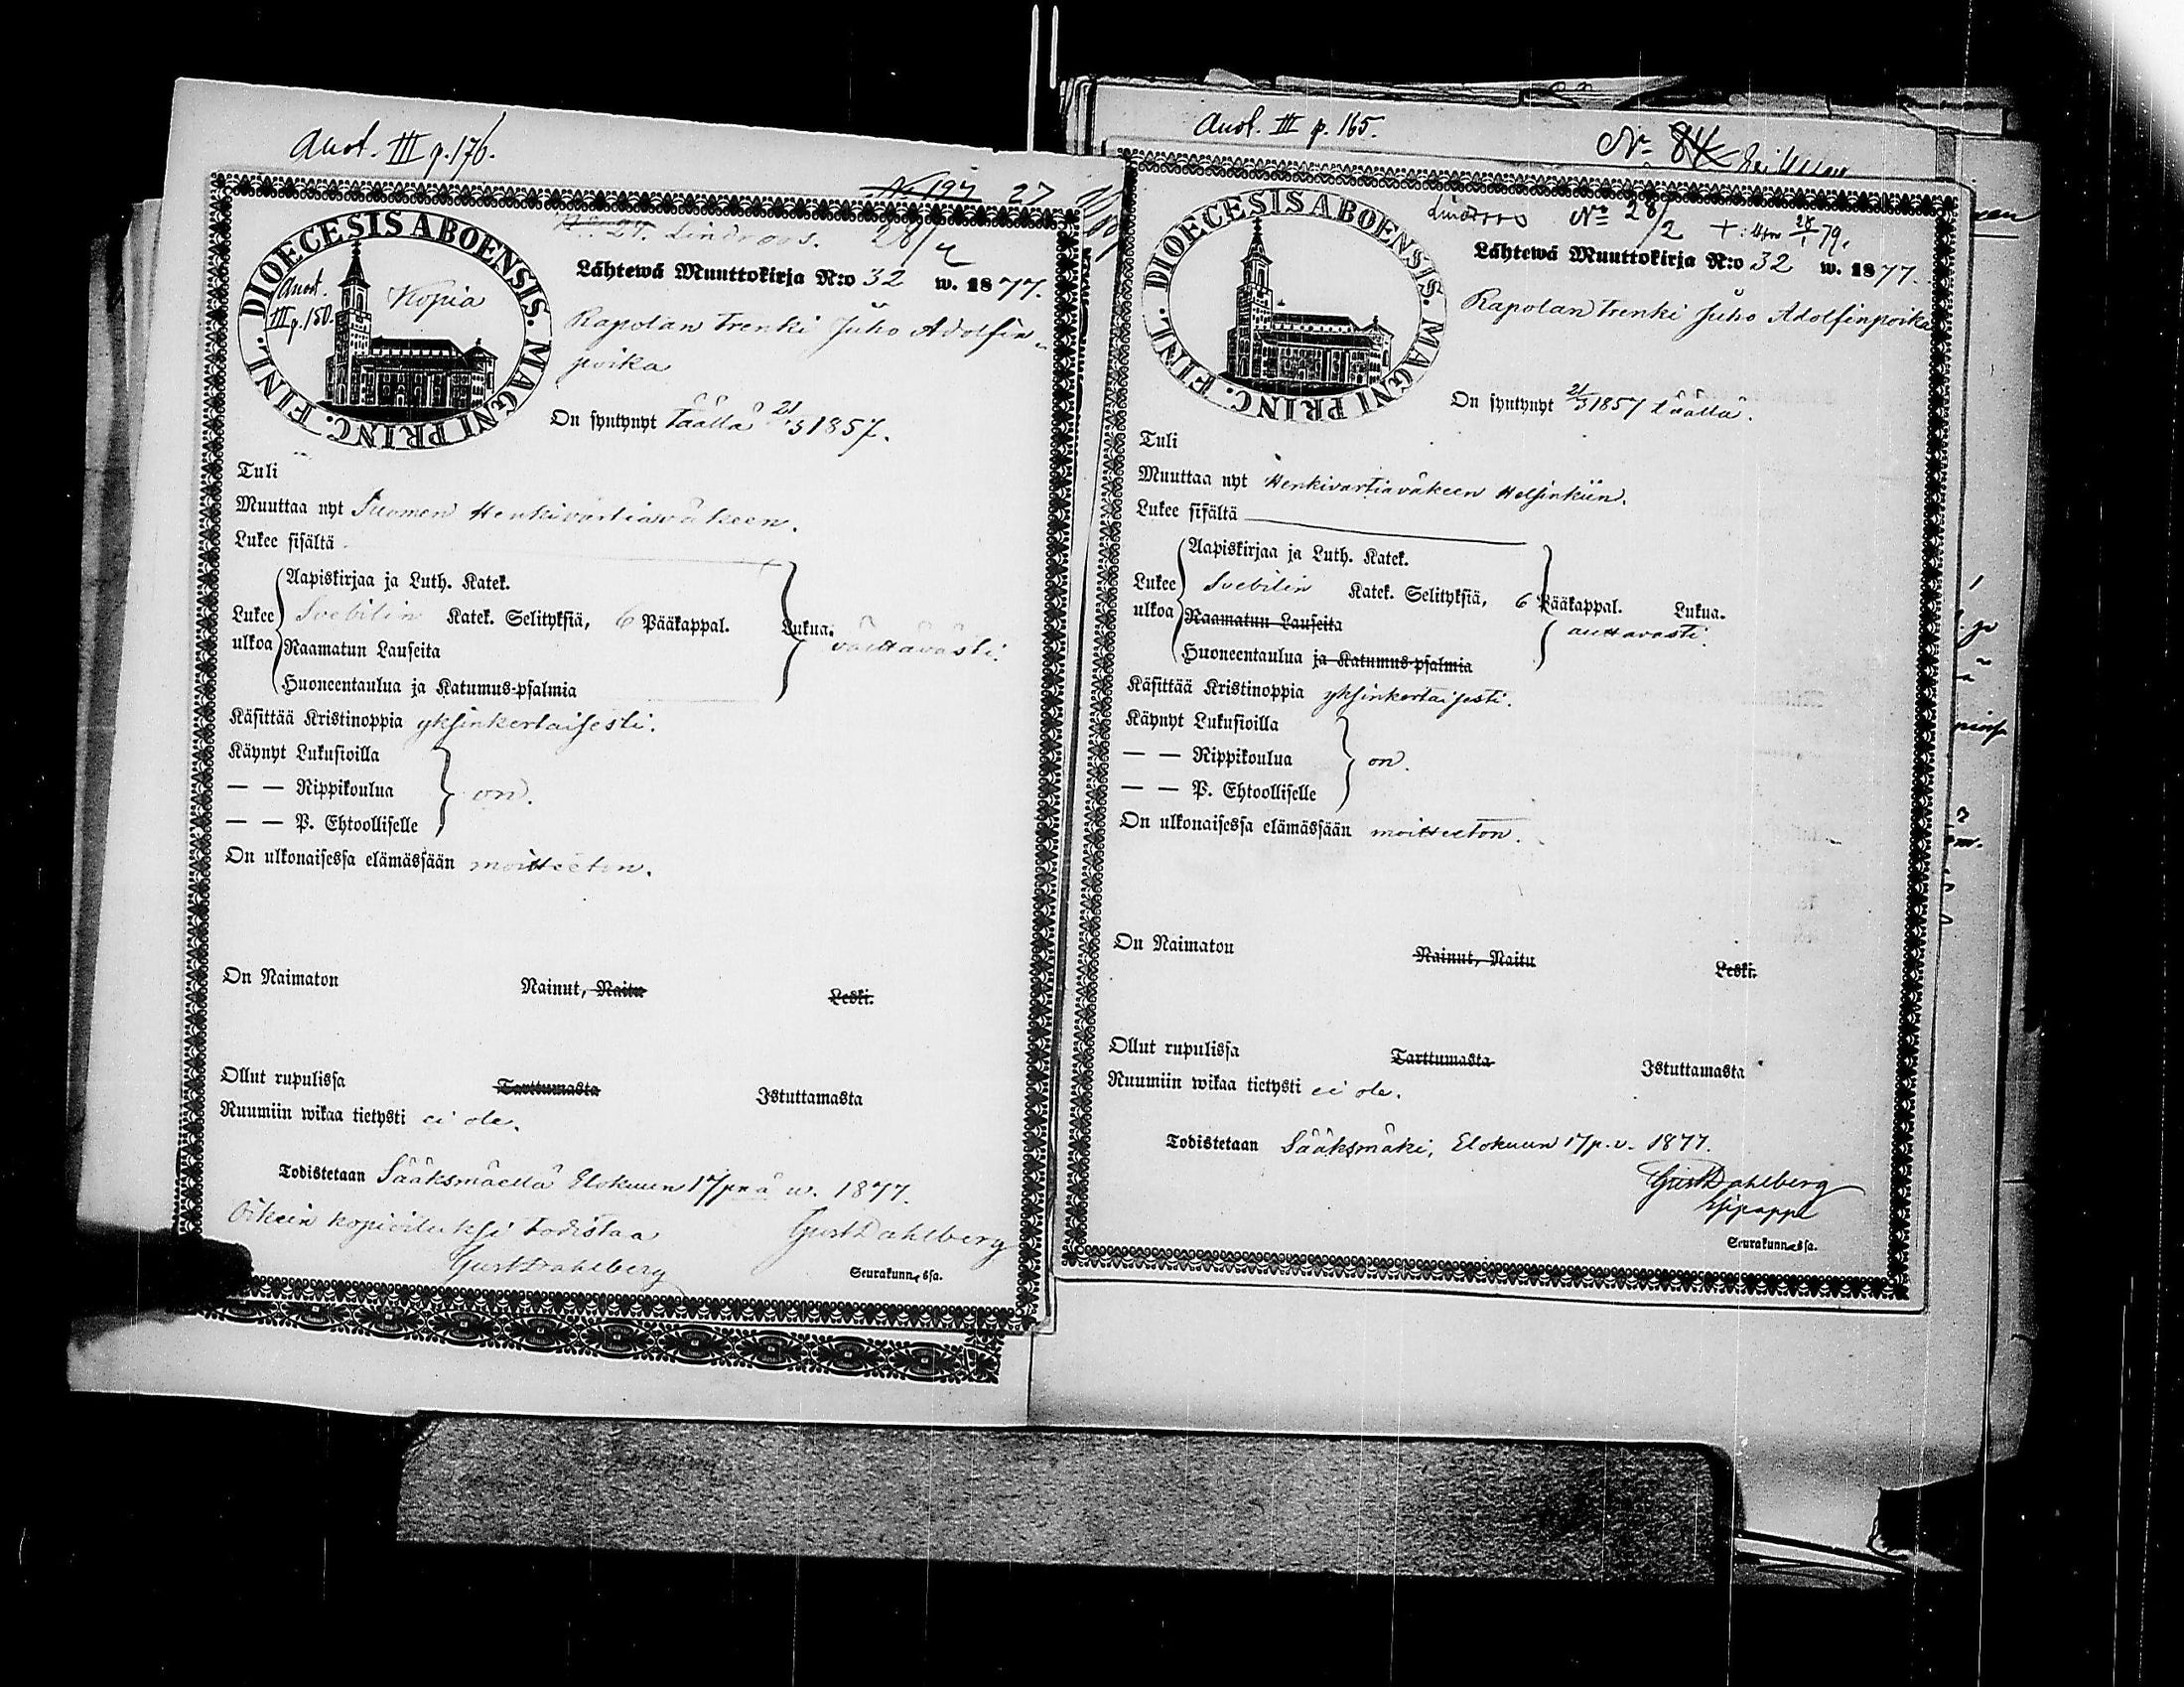 Anot. III p. 176.
27
Lindroos.
DIOECESIS ABOENSIS. MAGNI PRINC. FINL.
Anot.
III p. 150.
Kopia
Lähtewä Muuttokirja N:o 32 w. 1877.
Rapolan trenki Juho Adolfin-
poika
On syntynyt täällä 21/3 1857.
Tuli
Muuttaa nyt Suomen Henkivartiawäkeen.
Lukee sisältä
Aapiskirjaa ja Luth. Katek.
Lukee ulkoa
Svebilin Katek. Selityksiä, 6 Pääkappal. Lukua.
Raamatun Lauseita
Huoneentaulua ja Katumus-psalmia
Käsittää Kristinoppia yksinkertaisesti.
Käynyt Lukusioilla
— — Rippikoulua on.
— — P. Ehtoolliselle
On ulkonaisessa elämässään moitteeton.
On Naimaton Nainut, Naitu Leski.
Ollut rupulissa Tarttumasta Istuttamasta
Ruumiin wikaa tietysti ei ole.
Todistetaan Sääksmäellä Elokuun 17 pnä w. 1877.
Oikein kopioiduksi todistaa Gust Dahlberg
Gust Dahlberg
Seurakunnassa.
Anot. III p. 165.
No 84
Lindroos No 28/2
DIOECESIS ABOENSIS. MAGNI PRINC. FINL.
Lähtewä Muuttokirja N:o 32 w. 1877.
Rapolan trenki Juho Adolfinpoika
On syntynyt 21/3 1857 täällä.
Tuli
Muuttaa nyt Henkivartiaväkeen Helsinkiin.
Lukee sisältä
Aapiskirjaa ja Luth. Katek.
Lukee ulkoa
Svebilin Katek. Selityksiä, 6 Pääkappal. Lukua.
Raamatun Lauseita auttavasti.
Huoneentaulua ja Katumus-psalmia
Käsittää Kristinoppia yksinkertaisesti.
Käynyt Lukusioilla
— — Rippikoulua on.
— — P. Ehtoolliselle
On ulkonaisessa elämässään moitteeton.
On Naimaton Nainut, Naitu Leski.
Ollut rupulissa Tarttumasta Istuttamasta
Ruumiin wikaa tietysti ei ole.
Todistetaan Sääksmäki, Elokuun 17 p. v. 1877.
Gust Dahlberg
Seurakunnassa.